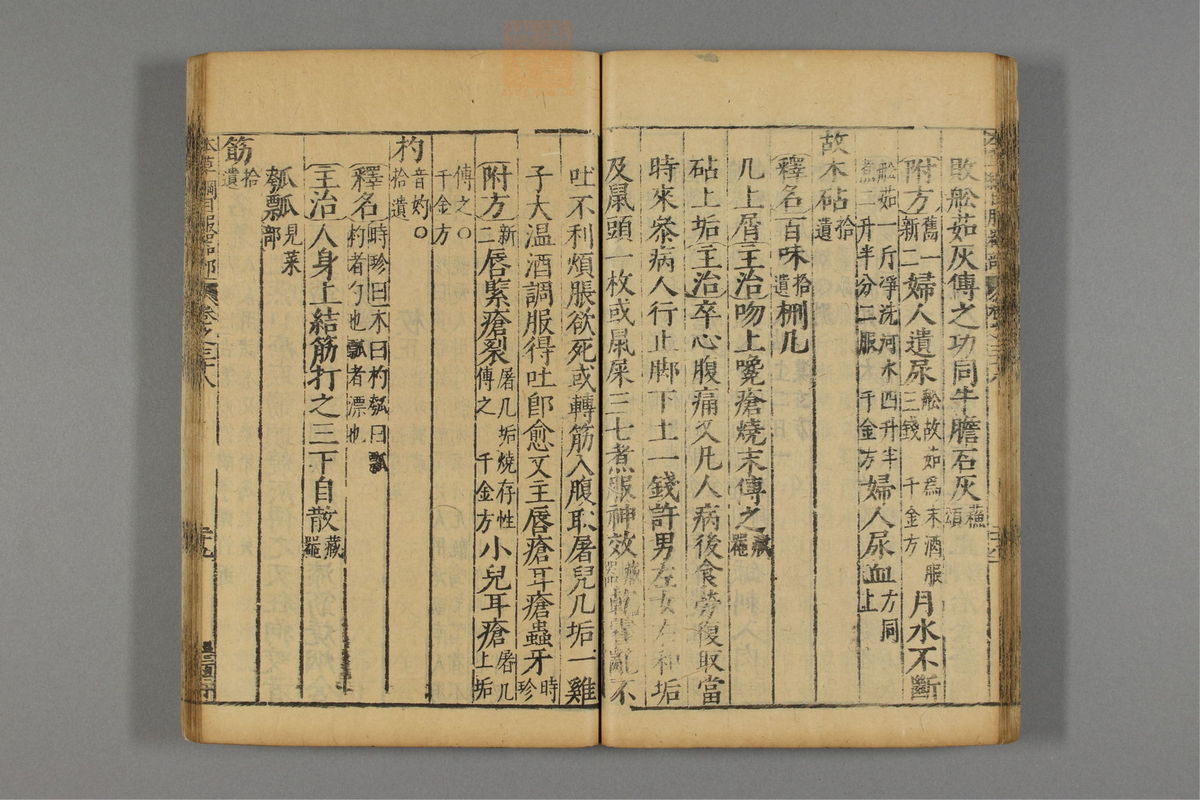 敗舩茹灰傅之功同牛膽石灰蘓頌
附方舊一新二婦人遺尿舩故茹為末酒服三錢千金方月水不斷
舩茹一斤淨洗河水四升半煮二升半分二服千金方婦人尿血方同上
故木砧拾遺
釋名百味拾遺杒几
几上屑主治吻上㗜瘡燒末傅之藏器
砧上垢主治卒心腹痛又凡人病後食勞復取當
時來叅病人行止脚下土一錢許男左女右和垢
及鼠頭一枚或鼠屎三七煮服神效藏器乾霍亂不
吐不利煩脹欲死或轉筋入腹取屠兒几垢一雞
子大溫酒調服得吐卽愈又主唇瘡耳瘡蟲牙時珍
附方新二唇緊瘡裂屠几垢燒存性傅之千金方小兒耳瘡屠几上垢
傅之○千金方
杓音妁○拾遺
釋名時珍曰木曰杓瓠曰瓢杓者勺也瓢者漂也
主治人身上結筋打之三下自散藏器
瓠瓢見菜部
筋拾遺
本草綱目服器部 卷之三十八 三十九